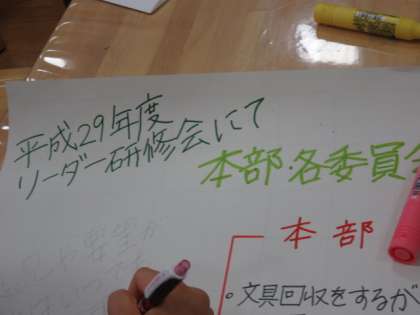 平成29年度
リーダー研修会にて
本部・各委員会
本部
・文具回収をするが